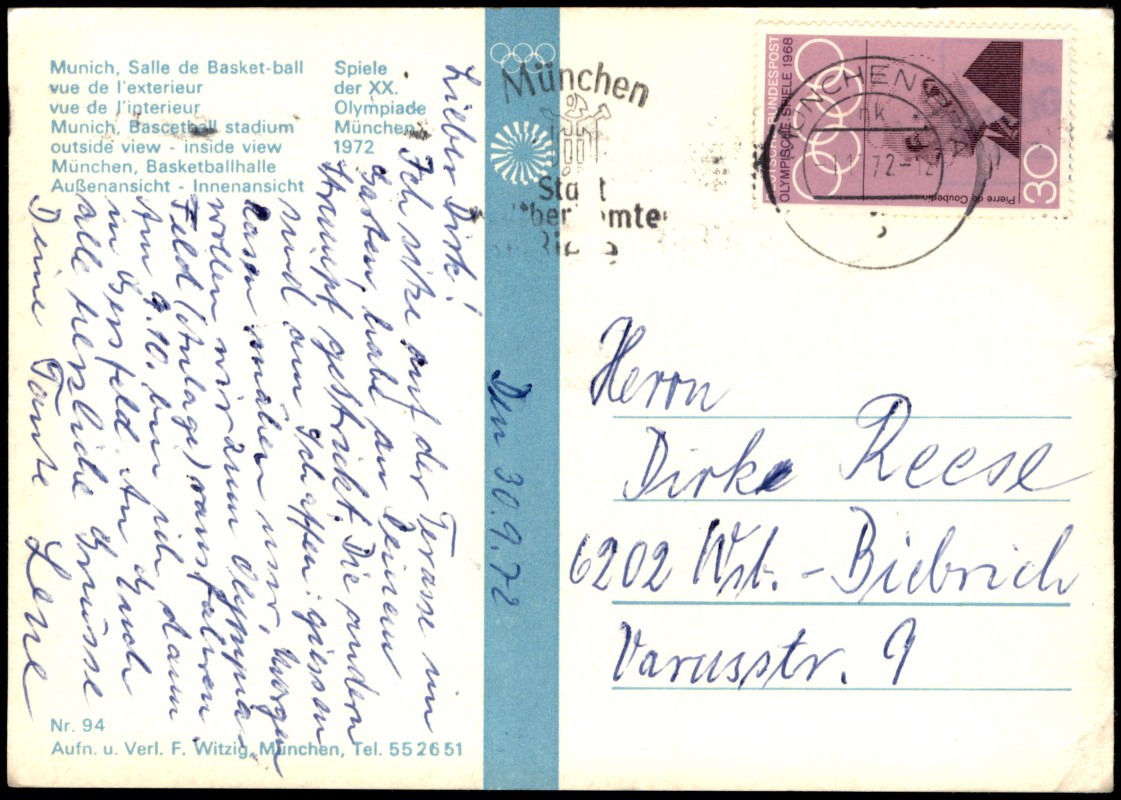 Munich, Salle de Basket-ball
vue de l'exterieur
vue de l'igterieur
Munich, Bascetball stadium
outside view - inside view
München, Basketballhalle
Außenansicht - Innenansicht
Spiele
der XX.
Olympiade
München
1972
Lieber Dirk!
Ich sitze auf der Terasse im
Garten, habe an Deinem
Strumpf gestrickt. Die andern
sind am Schaffen: giessen
Rasen mähen usw, Morgen
wollen wir zum Olympia
Feld (Anlage) rausfahren.
Am 9.10. bin ich dann
in Hersfeld. An Euch
alle herzliche Grüsse
Deine Tante Lene
Nr. 94
Aufn. u. Verl. F. Witzig, München, Tel. 55 26 51
Den 30.9.72
München
Sta t
ber mte
DEUTSCHE BUNDESPOST
OLYMPISCHE SPIELE 1968
Pierre de Coubertin
30
MÜNCHEN
72-12
Herrn
Dirk Reese
6202 Wsb. - Biebrich
Varusstr. 9